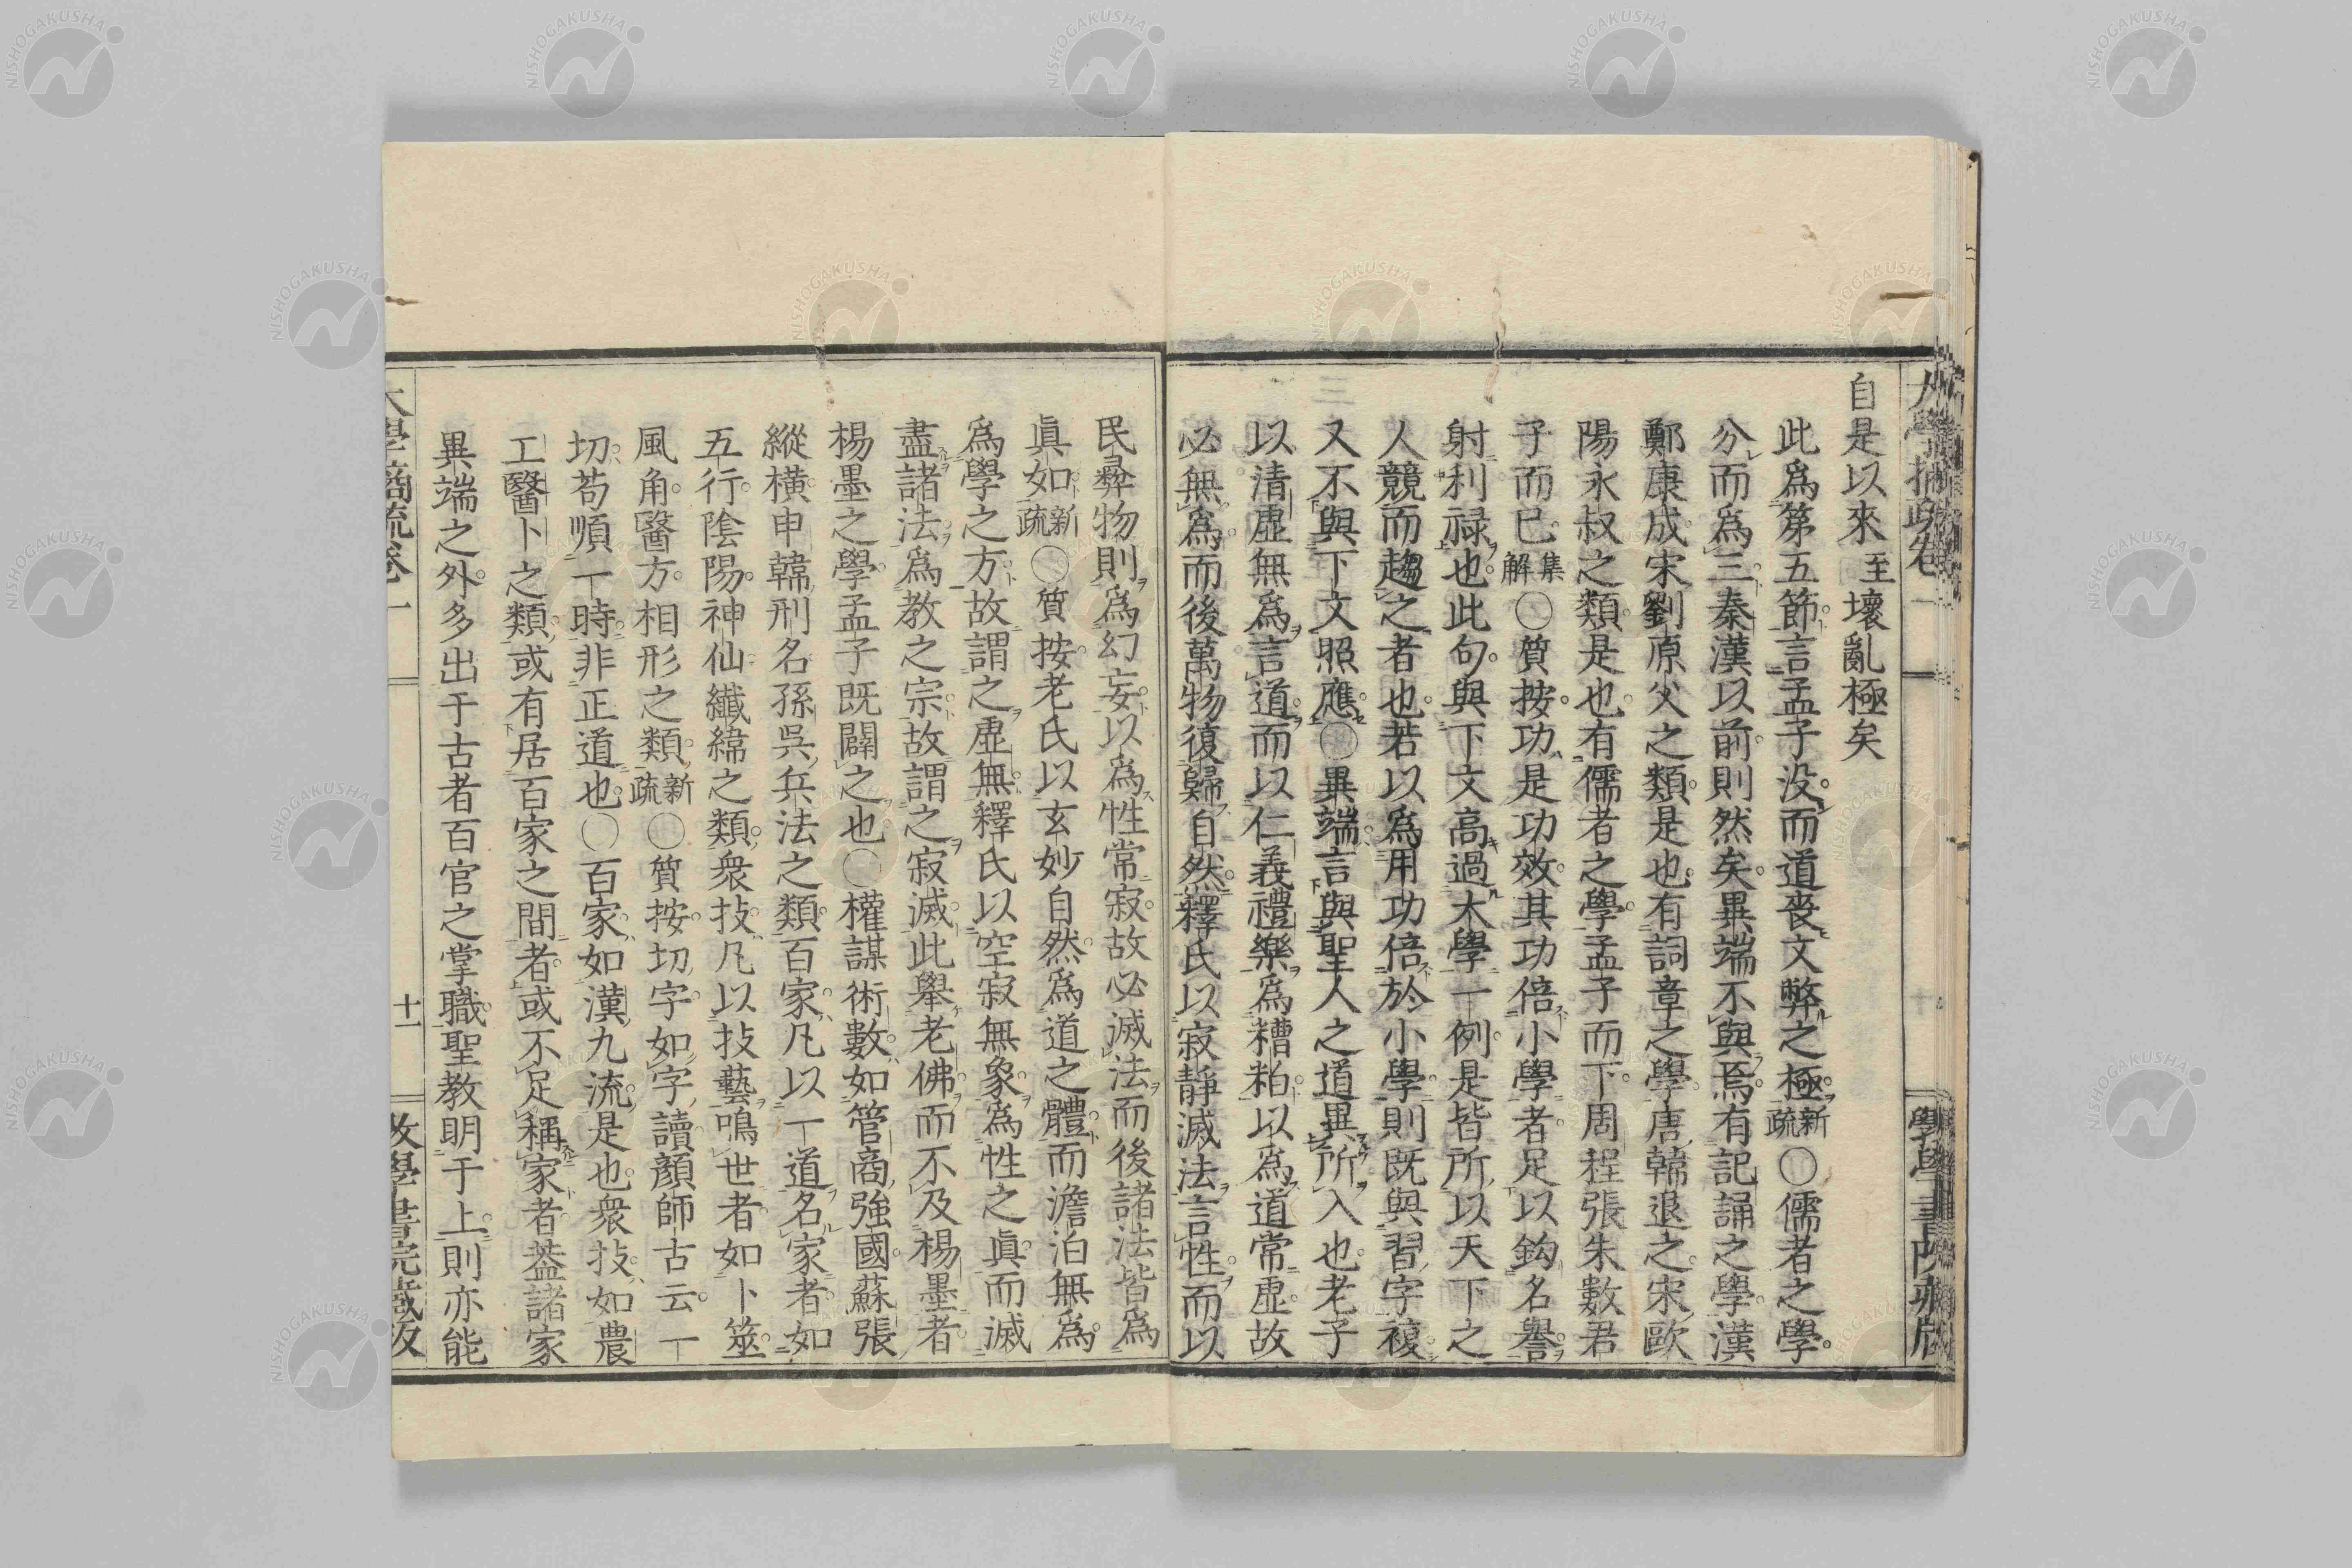 自是以來至壞亂極矣
此爲第五節言孟子没而道喪文弊之極新疏〇儒者之學
分而爲三秦漢以前則然矣異端不與焉有記誦之學漢
鄭康成宋劉原父之類是也有詞章之學唐韓退之宋歐
陽永叔之類是也有儒者之學孟子而下周程張朱數君
子而已集解〇質按功是功效其功倍小學者足以鈎名譽
射利祿也此句與下文高過大學一例是皆所以天下之
人競而趨之者也若以爲用功倍於小學則既與習字複
又不與下文照應〇異端言與聖人之道異所入也老子
以清虛無爲言道而以仁義禮樂爲糟粕以爲道常虛故
必無爲而後萬物復歸自然釋氏以寂靜滅法言性而以
民彝物則爲幻妄以爲性常寂故必滅法而後諸法皆爲
眞如新疏〇質按老氏以玄妙自然爲道之體而澹泊無爲
爲學之方故謂之虛無釋氏以空寂無象爲性之眞而滅
盡諸法爲教之宗故謂之寂滅此舉老佛而不及楊墨者
楊墨之學孟子既闢之也〇權謀術數如管商強國蘇張
縱橫申韓刑名孫吳兵法之類百家凡以一道名家者如
五行陰陽神仙讖緯之類衆技凡以技藝鳴世者如卜筮
風角醫方相形之類新疏〇質按切字如字讀顏師古云一
切苟順一時非正道也〇百家如漢九流是也衆技如農
工醫卜之類或有居百家之間者或不足稱家者葢諸家
異端之外多出于古者百官之掌職聖教明于上則亦能
大學摘疏卷一
十一
敩學書院藏版
NISHOGAKUSHA